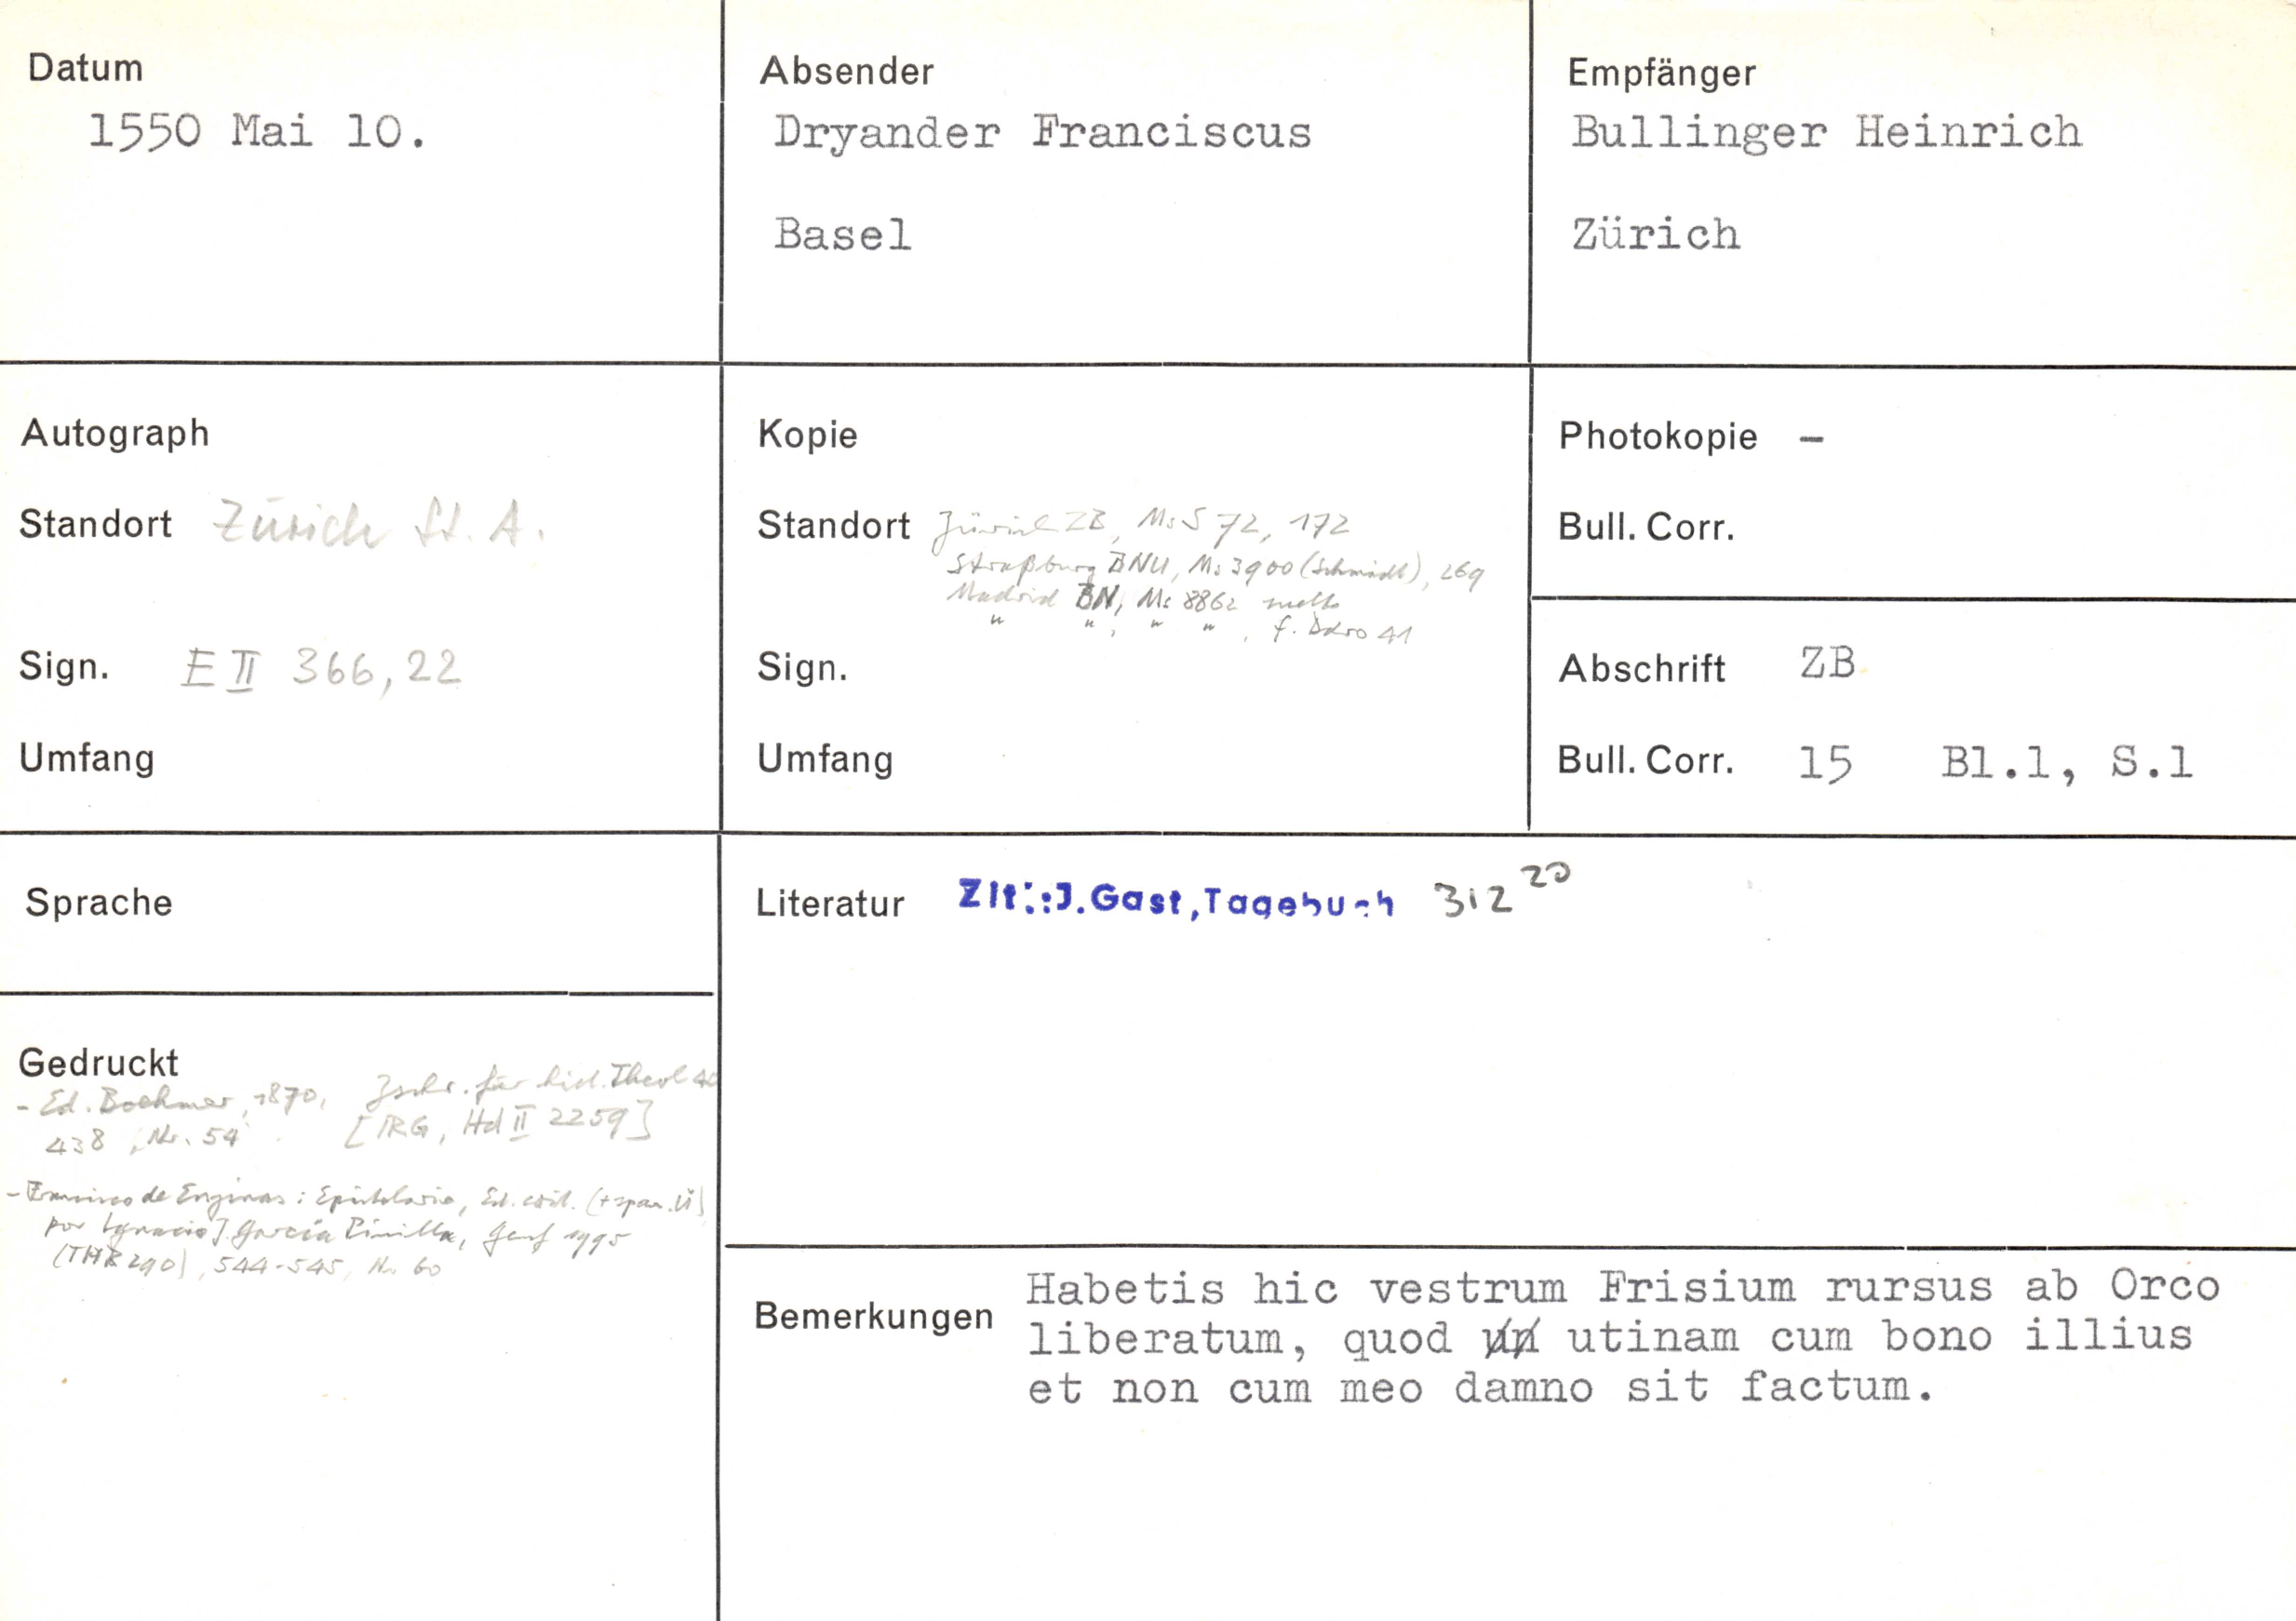 Datum
1550 Mai 10.
Absender
Dryander Franciscus
Basel
Empfänger
Bullinger Heinrich
Zürich
Autograph
Standort Zürich St. A.
Sign. E II 366,22
Umfang
Kopie
Standort Zürich ZB, Ms S 72, 172
Straßburg BNU, Ms 3900 (Schmidt), 269
Madrid BN, Ms 8862
" " , " " , f. 41
Sign.
Umfang
Photokopie -
Bull. Corr.
Abschrift ZB
Bull. Corr. 15 Bl.1, S.1
Sprache
Literatur Zit.:J.Gast,Tagebuch 312 20
Gedruckt
- Ed. Boehmer, 1870, Zschr. für hist. Theol 40
438, Nr. 54 [IRG, Hd II 2259]
- Francisco de Enzinas: Epistolario, Ed. crit. (+ span. Ü)
por Ignacio J. García Pinilla, Genf 1995
(THR 290), 544-545, Nr. 60
Bemerkungen
Habetis hic vestrum Frisium rursus ab Orco
liberatum, quod utinam cum bono illius
et non cum meo damno sit factum.